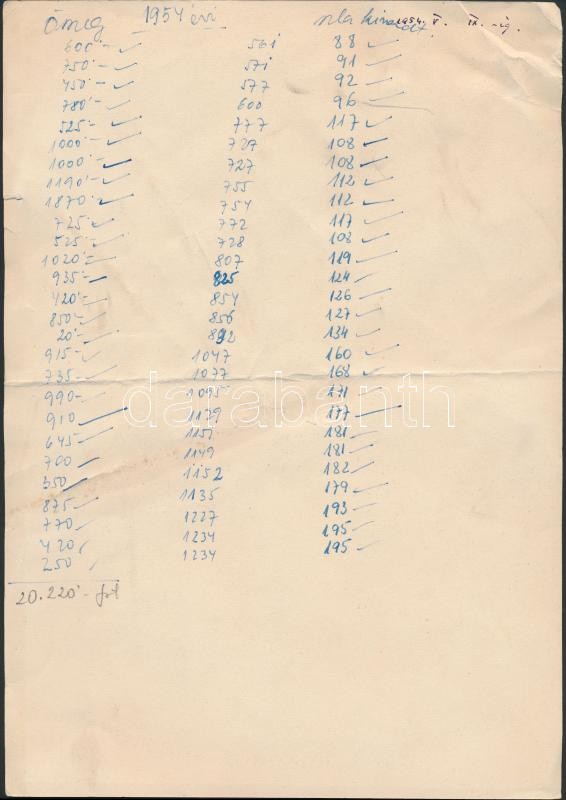 Ömeg 1954 évi szla 1954. V. IX.-ig.
600.- 561 88
750.- 571 91
450.- 577 92
780.- 600 96
525.- 777 117
1000.- 727 108
1000.- 727 108
1190.- 755 112
1870.- 754 112
725.- 772 117
525.- 728 108
1020.- 807 119
935.- 825 124
420.- 854 126
850.- 856 127
20.- 892 134
915.- 1047 160
735.- 1077 168
990.- 1095 171
910 1179 177
645 1151 181
700 1149 181
350 1152 182
875 1135 179
770 1227 193
420 1234 195
250 1234 195
20.220.- frt
darabanth